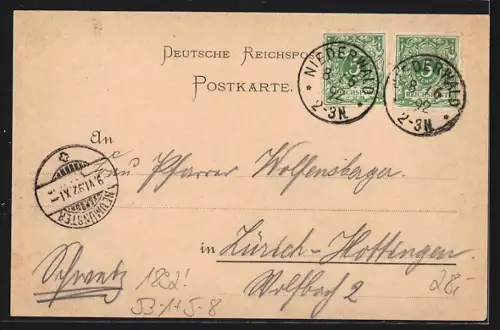 DEUTSCHE REICHSPOST
POSTKARTE.
NIEDERWALD
8 6
92
2-3N.
NIEDERWALD
8 6
92
2-3N.
5
5
REICHSPOST
An
Pfarrer Wolfensberger
NEUMÜNSTER
9.VI.92.XI
in Zürich-Hottingen
Wolfbach 2
Schweiz
1892!
53-1+5-8
28,-